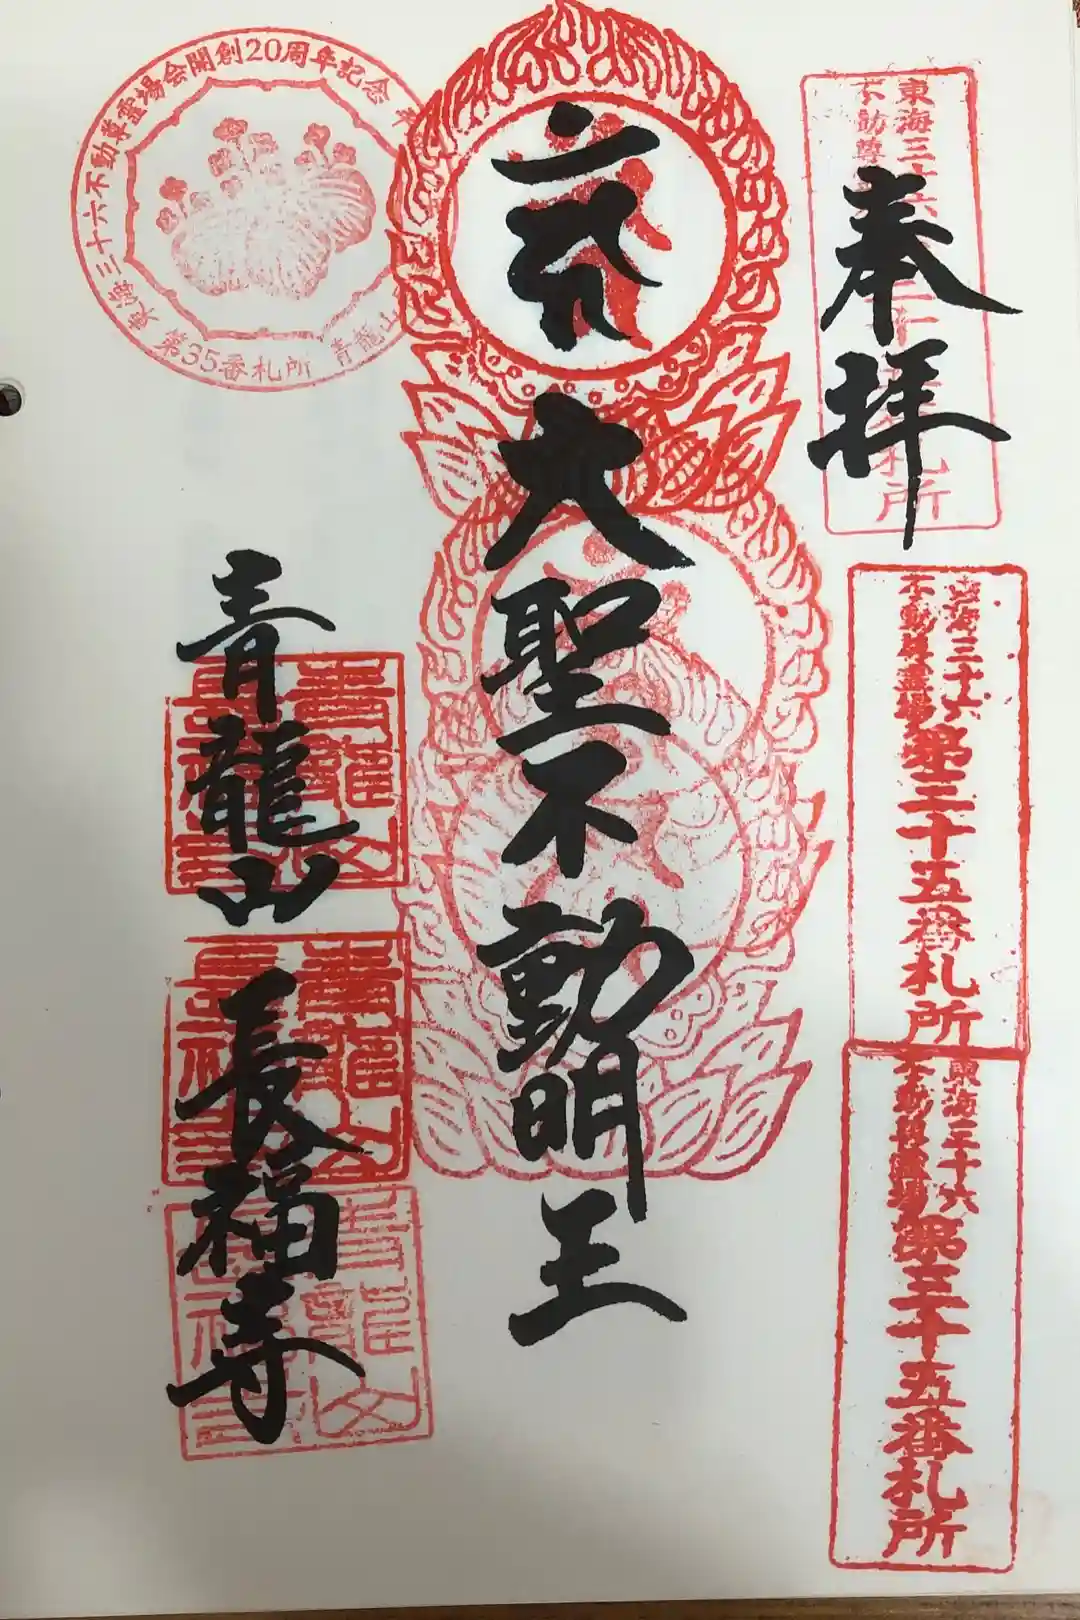 奉拝
東海三十六
不動尊
札所
東海三十六
不動尊霊場
第三十五番札所
東海三十六
不動尊霊場
第三十五番札所
大聖不動明王
東海三十六不動尊霊場会開創20周年記念
第35番札所 青龍山
青龍山 長福寺
青龍山
長福寺
青龍山
長福寺
青龍山